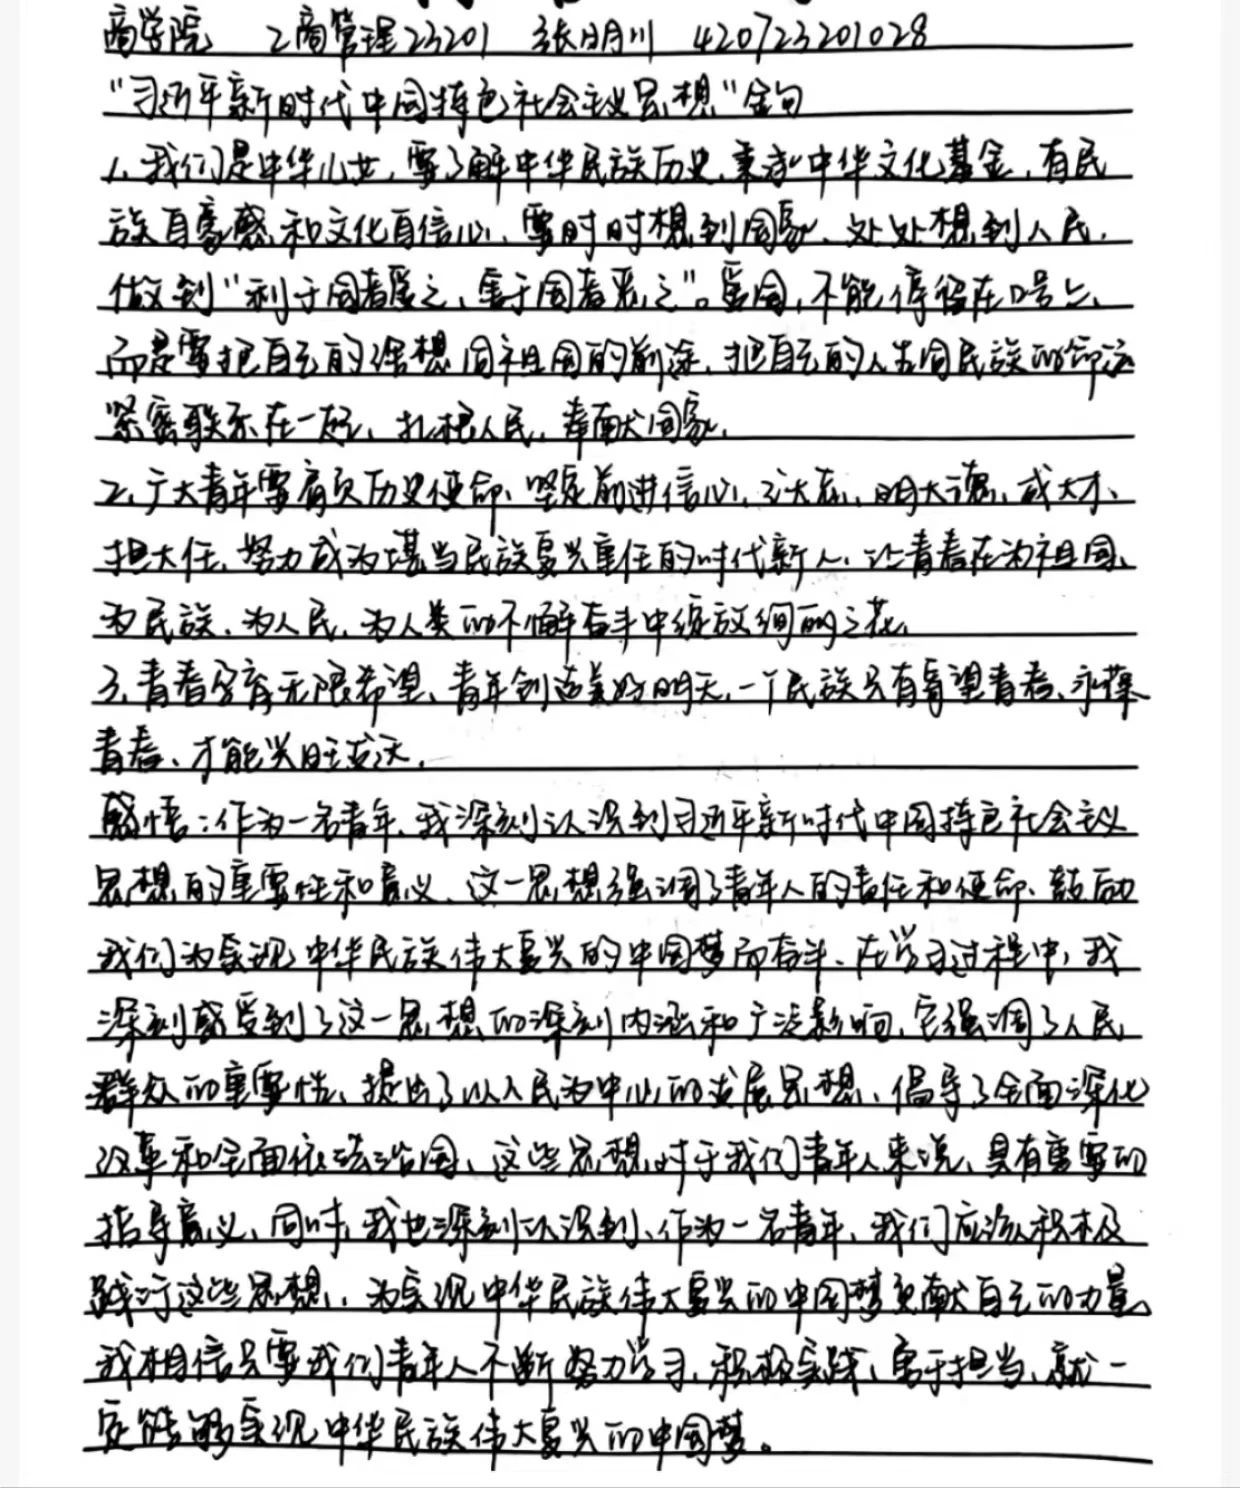 商学院 工商管理23201 张明川 420723201028
"习近平新时代中国特色社会主义思想"金句
1、我们是中华儿女，要了解中华民族历史，秉承中华文化基金，有民
族自豪感和文化自信心、要时时想到国家、处处想到人民，
做到"利于国者爱之、害于国者恶之"。爱国，不能停留在口号上、
而是要把自己的理想同祖国的前途、把自己的人生同民族的命运
紧密联系在一起、扎根人民，奉献国家，
2、广大青年要肩负历史使命、坚定前进信心、立大志、明大德、成大才、
担大任、努力成为堪当民族复兴重任的时代新人、让青春在为祖国、
为民族、为人民、为人类的不懈奋斗中绽放绚丽之花，
3、青春孕育无限希望、青年创造美好明天、一个民族只有寄望青春、永葆
青春、才能兴旺发达，
感悟：作为一名青年、我深刻认识到习近平新时代中国特色社会主义
思想的重要性和意义、这一思想强调了青年人的责任和使命、鼓励
我们为实现中华民族伟大复兴的中国梦而奋斗、在学习过程中，我
深刻感受到了这一思想的深刻内涵和广泛影响，它强调了人民
群众的重要性、提出了以人民为中心的发展思想、倡导了全面深化
改革和全面依法治国、这些思想对于我们青年人来说、具有重要的
指导意义、同时，我也深刻认识到、作为一名青年、我们应该积极
践行这些思想、为实现中华民族伟大复兴的中国梦贡献自己的力量，
我相信只要我们青年人不断努力学习、积极实践、勇于担当、就一
定能够实现中华民族伟大复兴的中国梦。